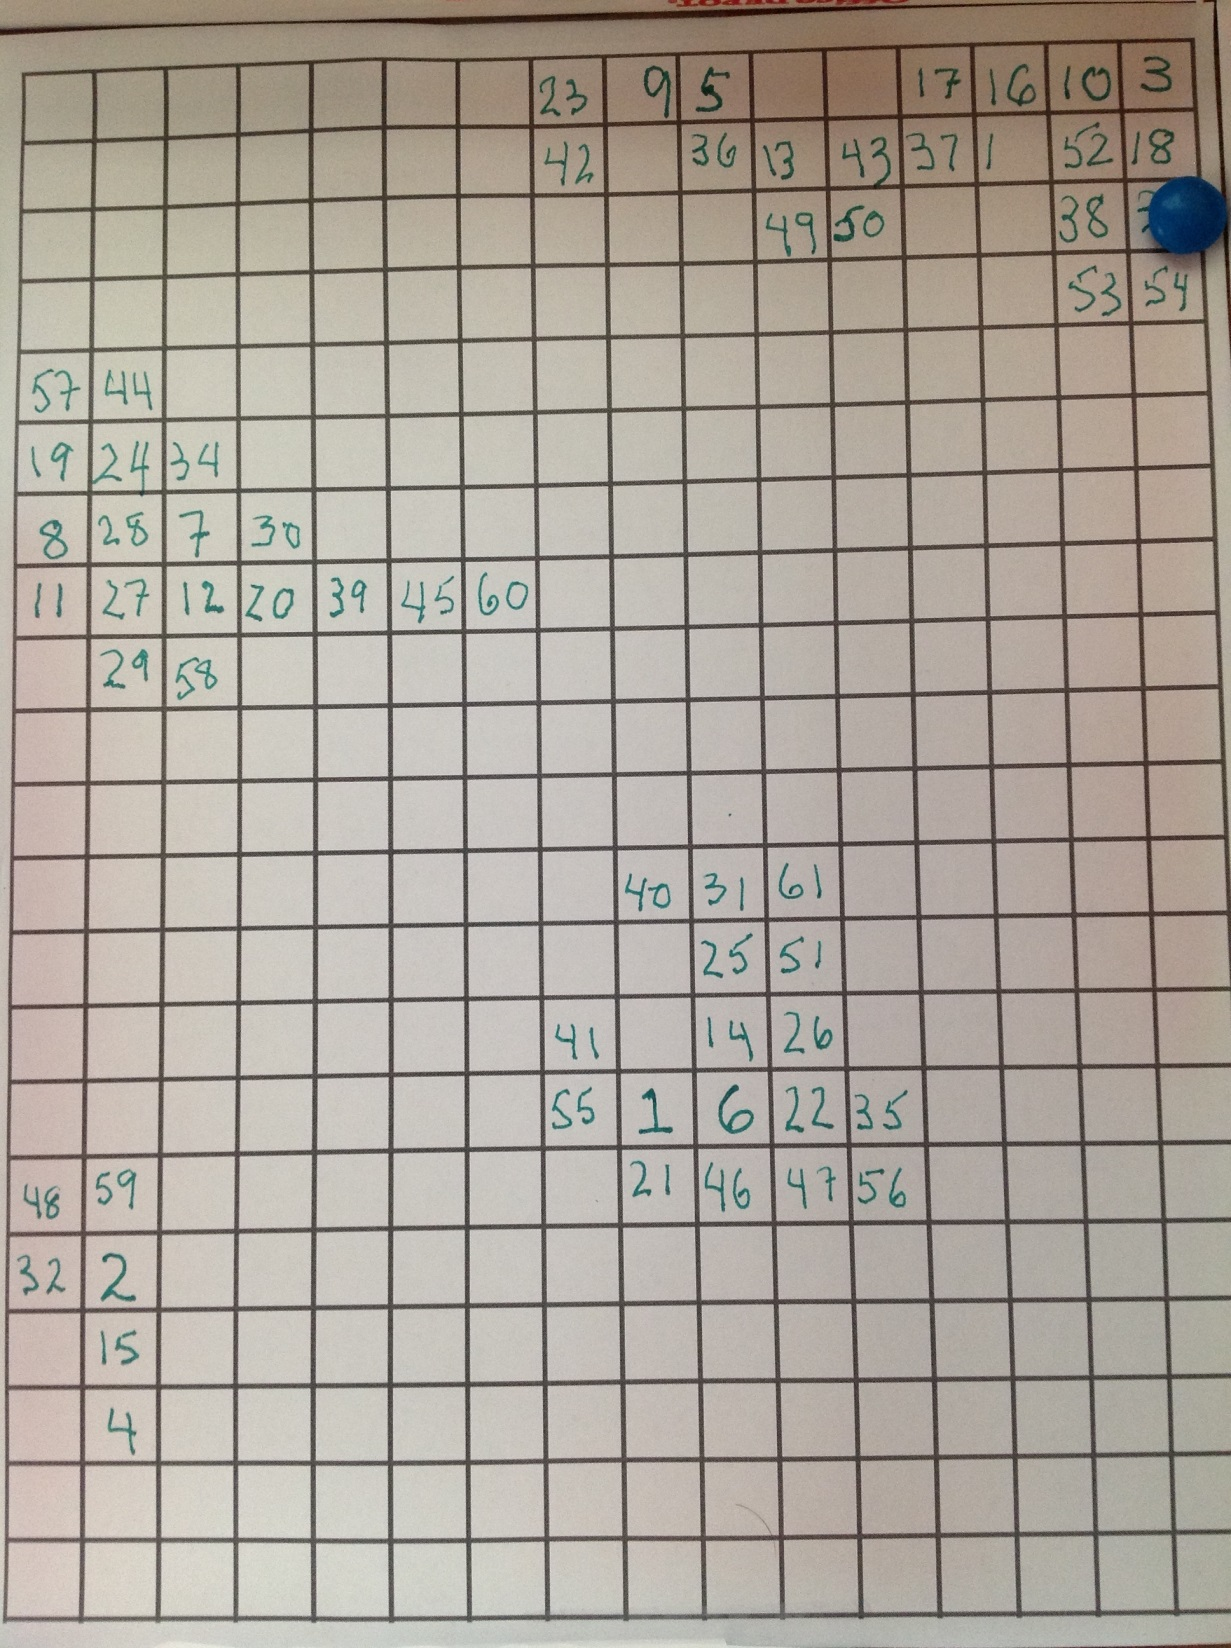 23 9 5 17 16 10 3
42 36 13 43 37 1 52 18
49 50 38
53 54
57 44
19 24 34
8 28 7 30
11 27 12 20 39 45 60
29 58
40 31 61
25 51
41 14 26
55 1 6 22 35
21 46 47 56
48 59
32 2
15
4